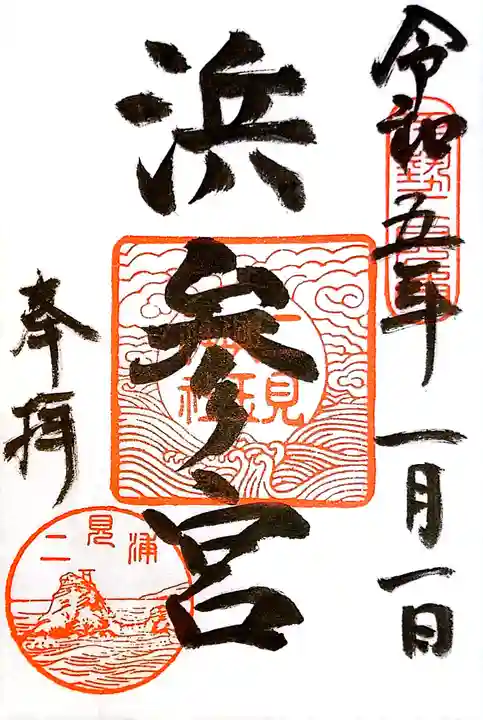 令和五年一月一日
浜参宮
奉拝
二見浦